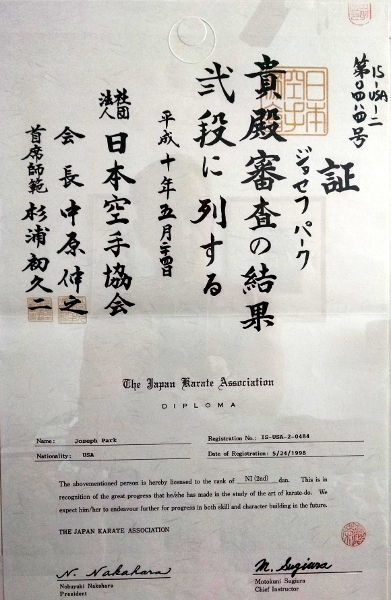 IS-USA-二
第〇四八四号
証
ジョセフ パーク
貴殿審査の結果
弐段に列する
平成十年五月二十四日
社団法人 日本空手協会
会長 中原伸之
首席師範 杉浦初久二
The Japan Karate Association
DIPLOMA
Name: Joseph Park Registration No.: IS-USA-2-0484
Nationality: USA Date of Registration: 5/24/1998
The abovementioned person is hereby licensed to the rank of NI (2nd) dan. This is in
recognition of the great progress that he/she has made in the study of the art of karate-do. We
expect him/her to endeavour further for progress in both skill and character building in the future.
THE JAPAN KARATE ASSOCIATION
N. Nakahara M. Sugiura
Nobuyuki Nakahara Motokuni Sugiura
President Chief Instructor